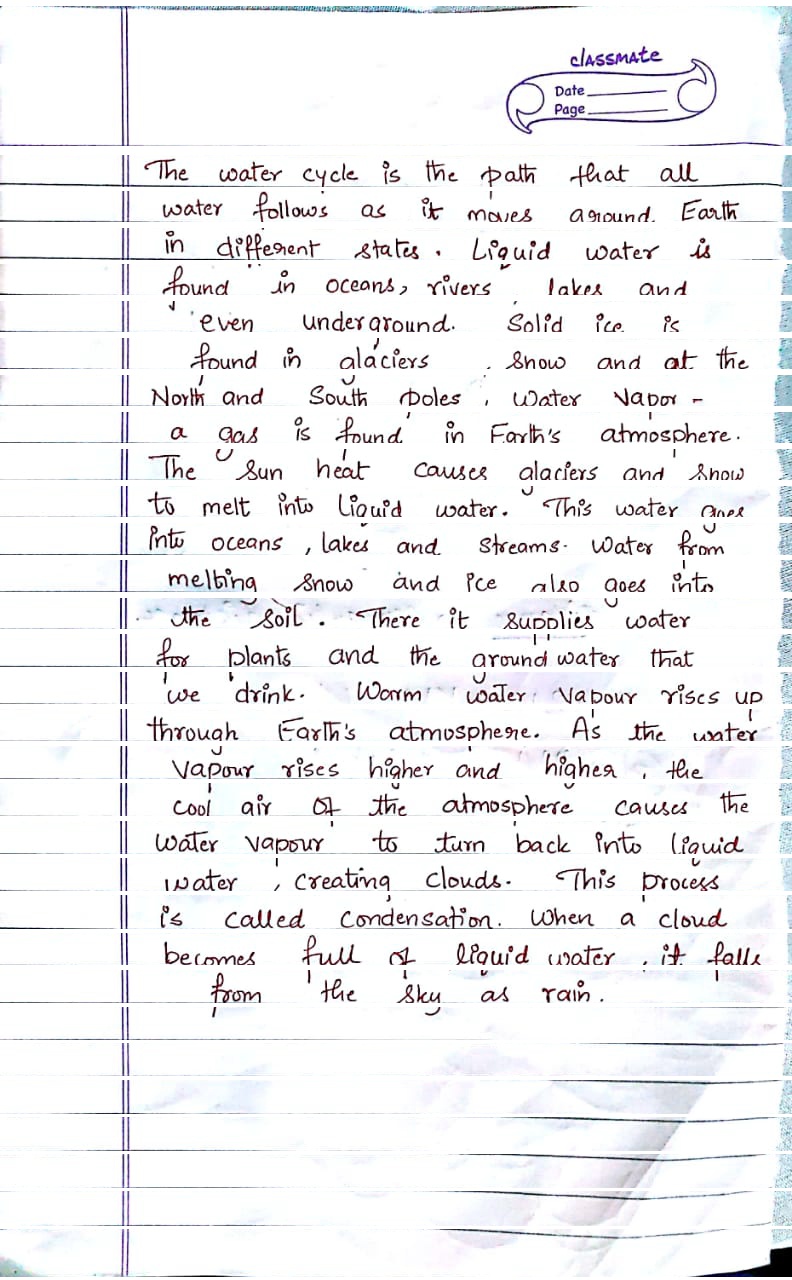 classmate
Date
Page
The water cycle is the path that all
water follows as it moves around Earth
in different states. Liquid water is
found in oceans, rivers lakes and
even underground. Solid ice is
found in glaciers , snow and at the
North and South poles , Water Vapor -
a gas is found in Earth's atmosphere.
The Sun heat causes glaciers and snow
to melt into liquid water. This water goes
into oceans , lakes and streams. Water from
melting snow and ice also goes into
the soil. There it supplies water
for plants and the ground water that
we drink. Warm water Vapour rises up
through Earth's atmosphere. As the water
Vapour rises higher and higher , the
cool air of the atmosphere causes the
water vapour to turn back into liquid
water , creating clouds. This process
is called condensation. When a cloud
becomes full of liquid water , it falls
from the sky as rain.